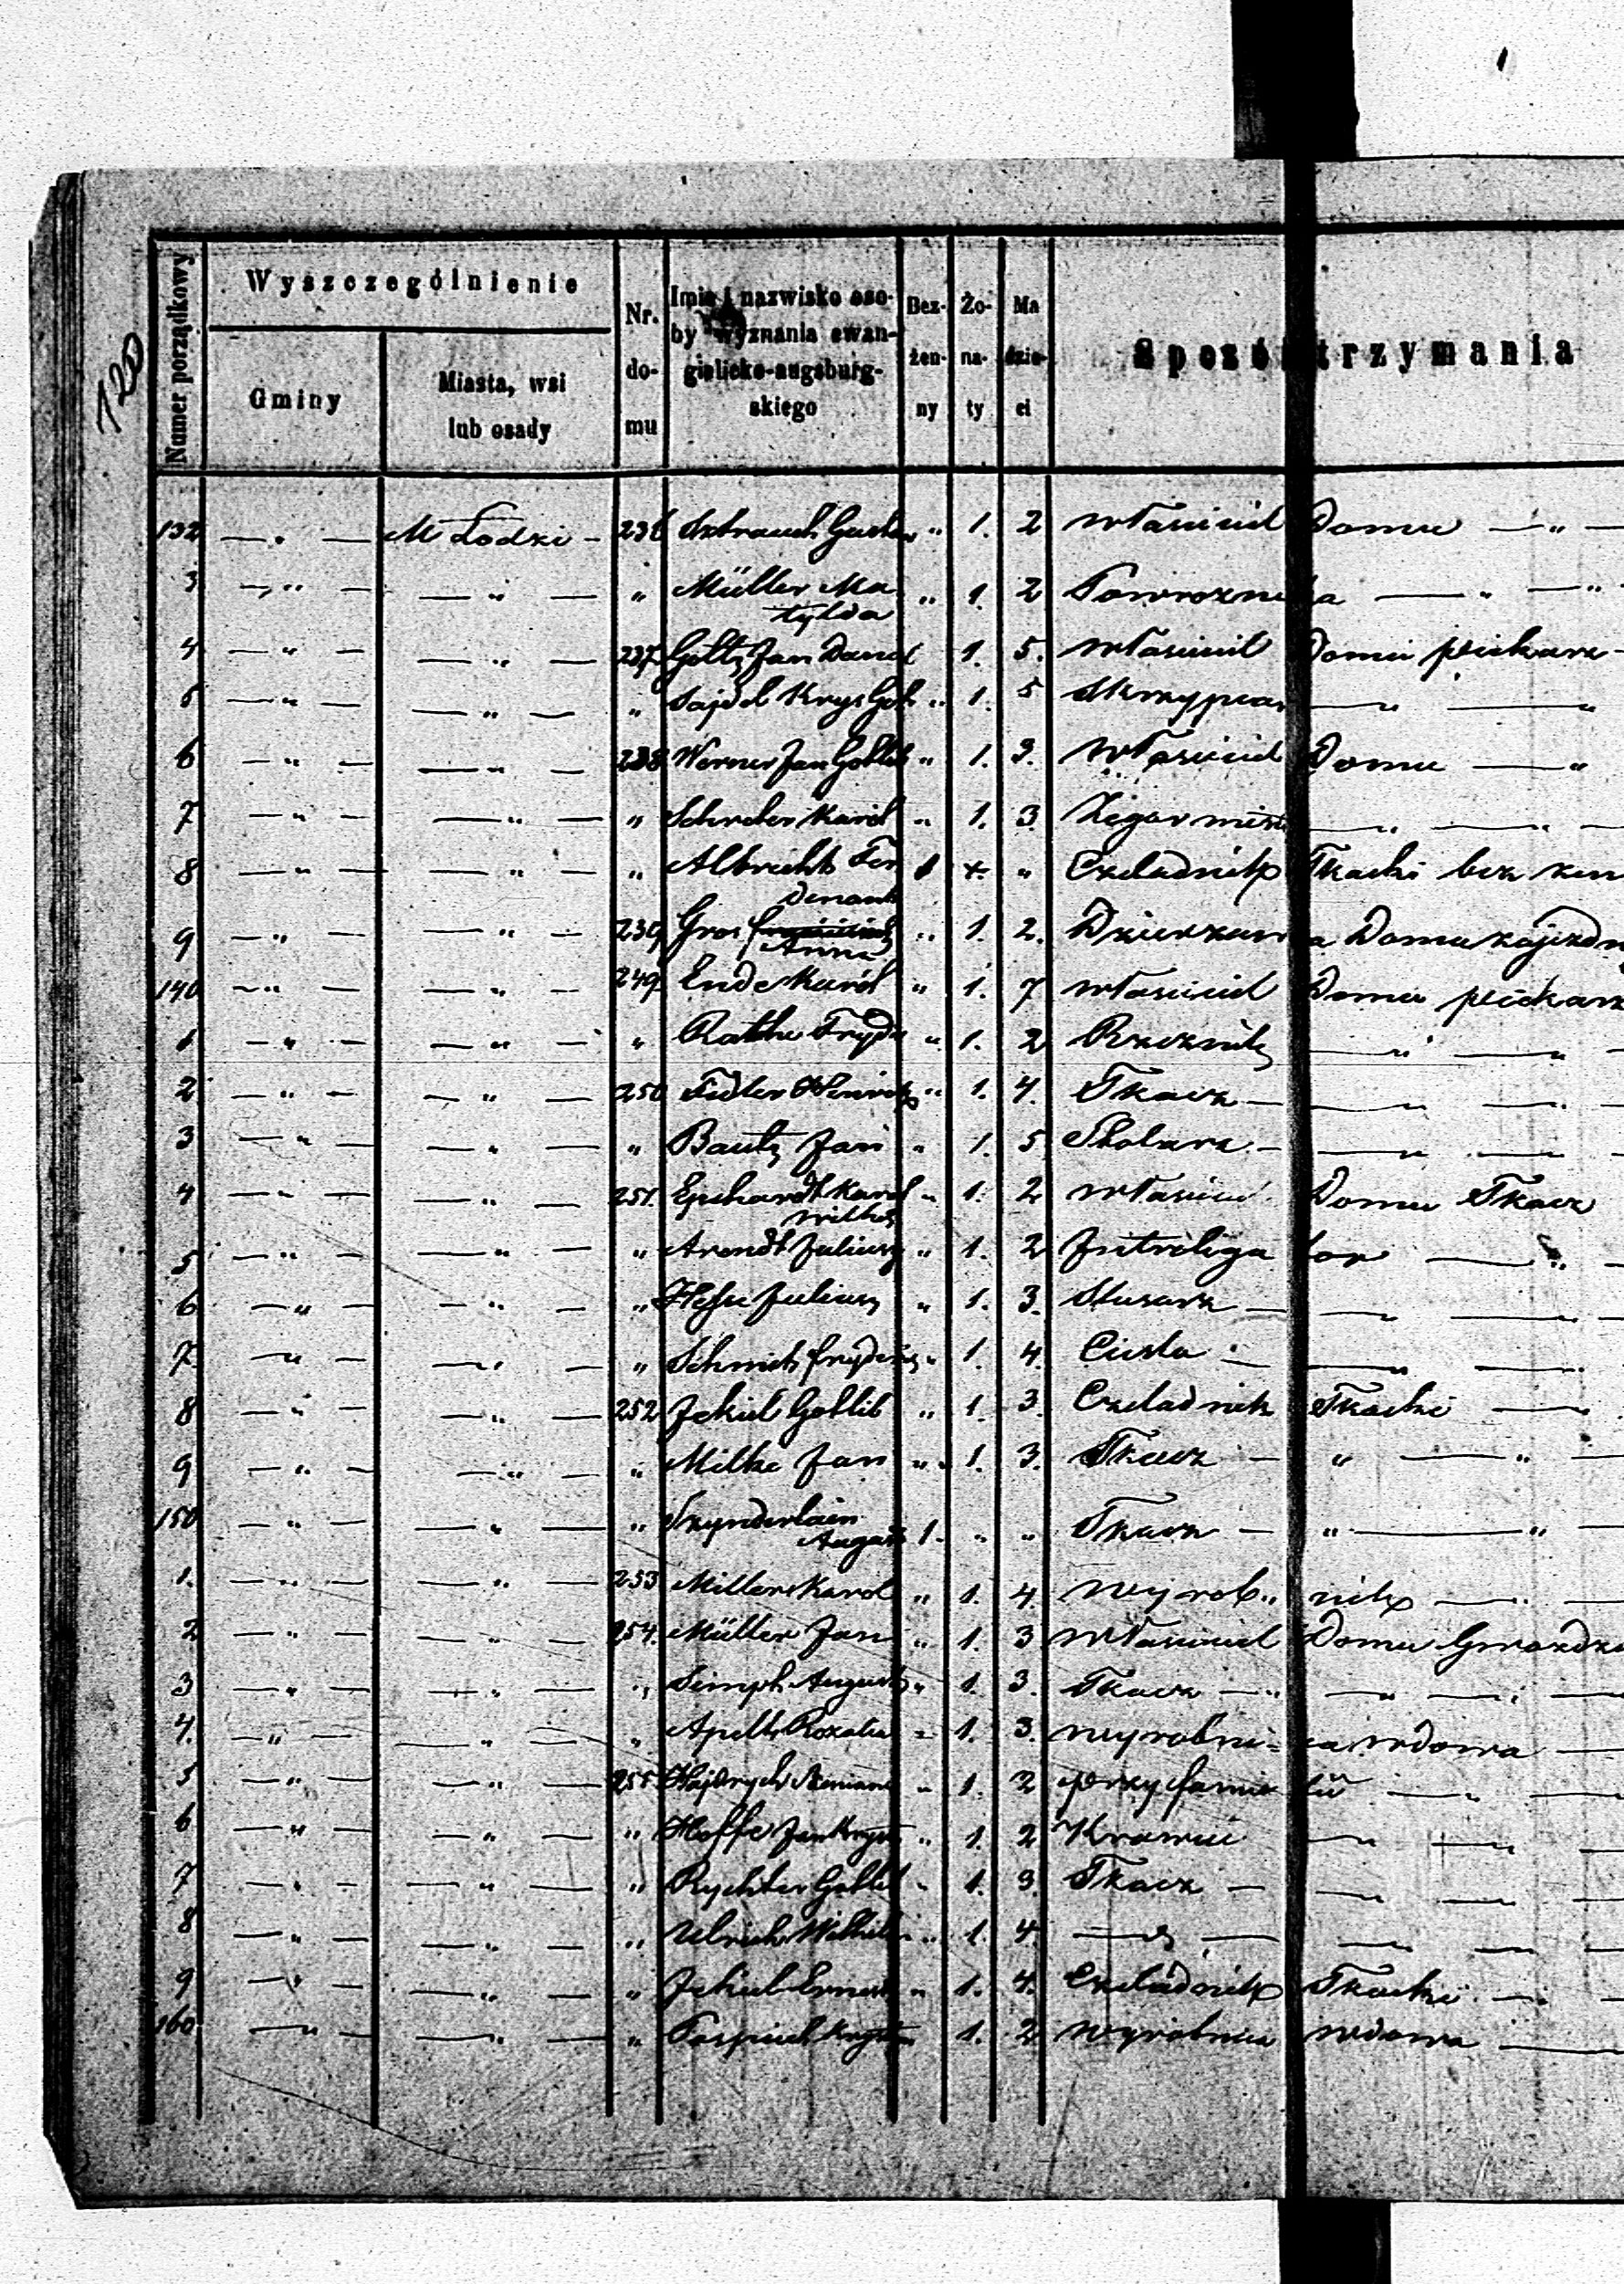 120
Numer porządkowy
Wyszczególnienie
Gminy
Miasta, wsi
lub osady
Nr.
do-
mu
Imię i nazwisko oso-
by wyznania ewan-
gielicko-augsburg-
skiego
Bez-
żen-
ny
Żo-
na-
ty
Ma
dzie-
ci
Sposó trzymania
132 — " — M Łodzi - 236 Sztrauch Gustaw " 1. 2 właściciel Domu — " —
3 — " — — " — " Müller Ma " 1. 2 Powrozni ka — " — "
tylda
4 — " — — " — 237 Goltz Jan Daniel 1. 5. właściciel Domu piekarz -
5 — " — — " — " Sajdel Krys Gotl " 1. 5 Skrzypiar — " — "
6 — " — — " — 238 Werner Jan Gotlib " 1. 3. Właściciel Domu — "
7 — " — — " — " Schreler Karol " 1. 3. Zegarmist — " — "
8 — " — — " — " Albricht Fer 1 + " Czeladnik Tkacki bez
denant
9 — " — — " — 239 Gros " 1. 2. Dzierzaw a Domu zajezdn
Anna
140 — " — — " — 249 Ende Karól " 1. 7 właściciel Domu piekarz
1 — " — — " — " Rathe Fryde " 1. 2 Rzeznik — " — "
2 — " — — " — 250 Fidler Henryk " 1. 4. Tkacz — — " —
3 — " — — " — " Bautz Jan " 1. 5 Stolarz — — " —
4 — " — — " — 251. Epshardt Karol " 1. 2 właściciel Domu Tkacz
wilhel
5 — " — — " — " Arendt Juliusz " 1. 2 Introliga tor — "
6 — " — — " — " Hesse Juliusz " 1. 3. Slusarz — — —
7 — " — — " — " Schmidt frydrich " 1. 4. Ciesla — — " —
8 — " — — " — 252 Jekiel Gotlib " 1. 3. Czeladnik Tkacki —
9 — " — — " — " Milke Jan " 1. 3. Tkacz — " — " —
150 — " — — " — " Szynderlain
August 1. " " Tkacz — " — " —
1. — " — — " — 253 Miller Karol " 1. 4. wyrob " nik — " —
2 — " — — " — 254. Müller Jan " 1. 3 właściciel Domu Gwozdz
3 — " — — " — " Simph August " 1. 3. Tkacz — " — " — " —
4. — " — — " — " Apelt Rozalia " 1. 3. wyrobni = ca wdowa —
5 — " — — " — 255 Hajdrych " 1. 2 przy famie lii — " —
6 — " — — " — " Hoffe Jan Kryst " 1. 2 Krawiec — " —
7 — " — — " — " Rychter Gotlib " 1. 3. Tkacz — — " —
8 — " — — " — " Ulrich Wilhelm " 1. 4. — " — — " —
9 — " — — " — " Jekiel Ernest " 1. 4. Czeladnik Tkacki —
160 — " — — " — " Pospiech Kryst 1. 2 wyrobnica wdowa —